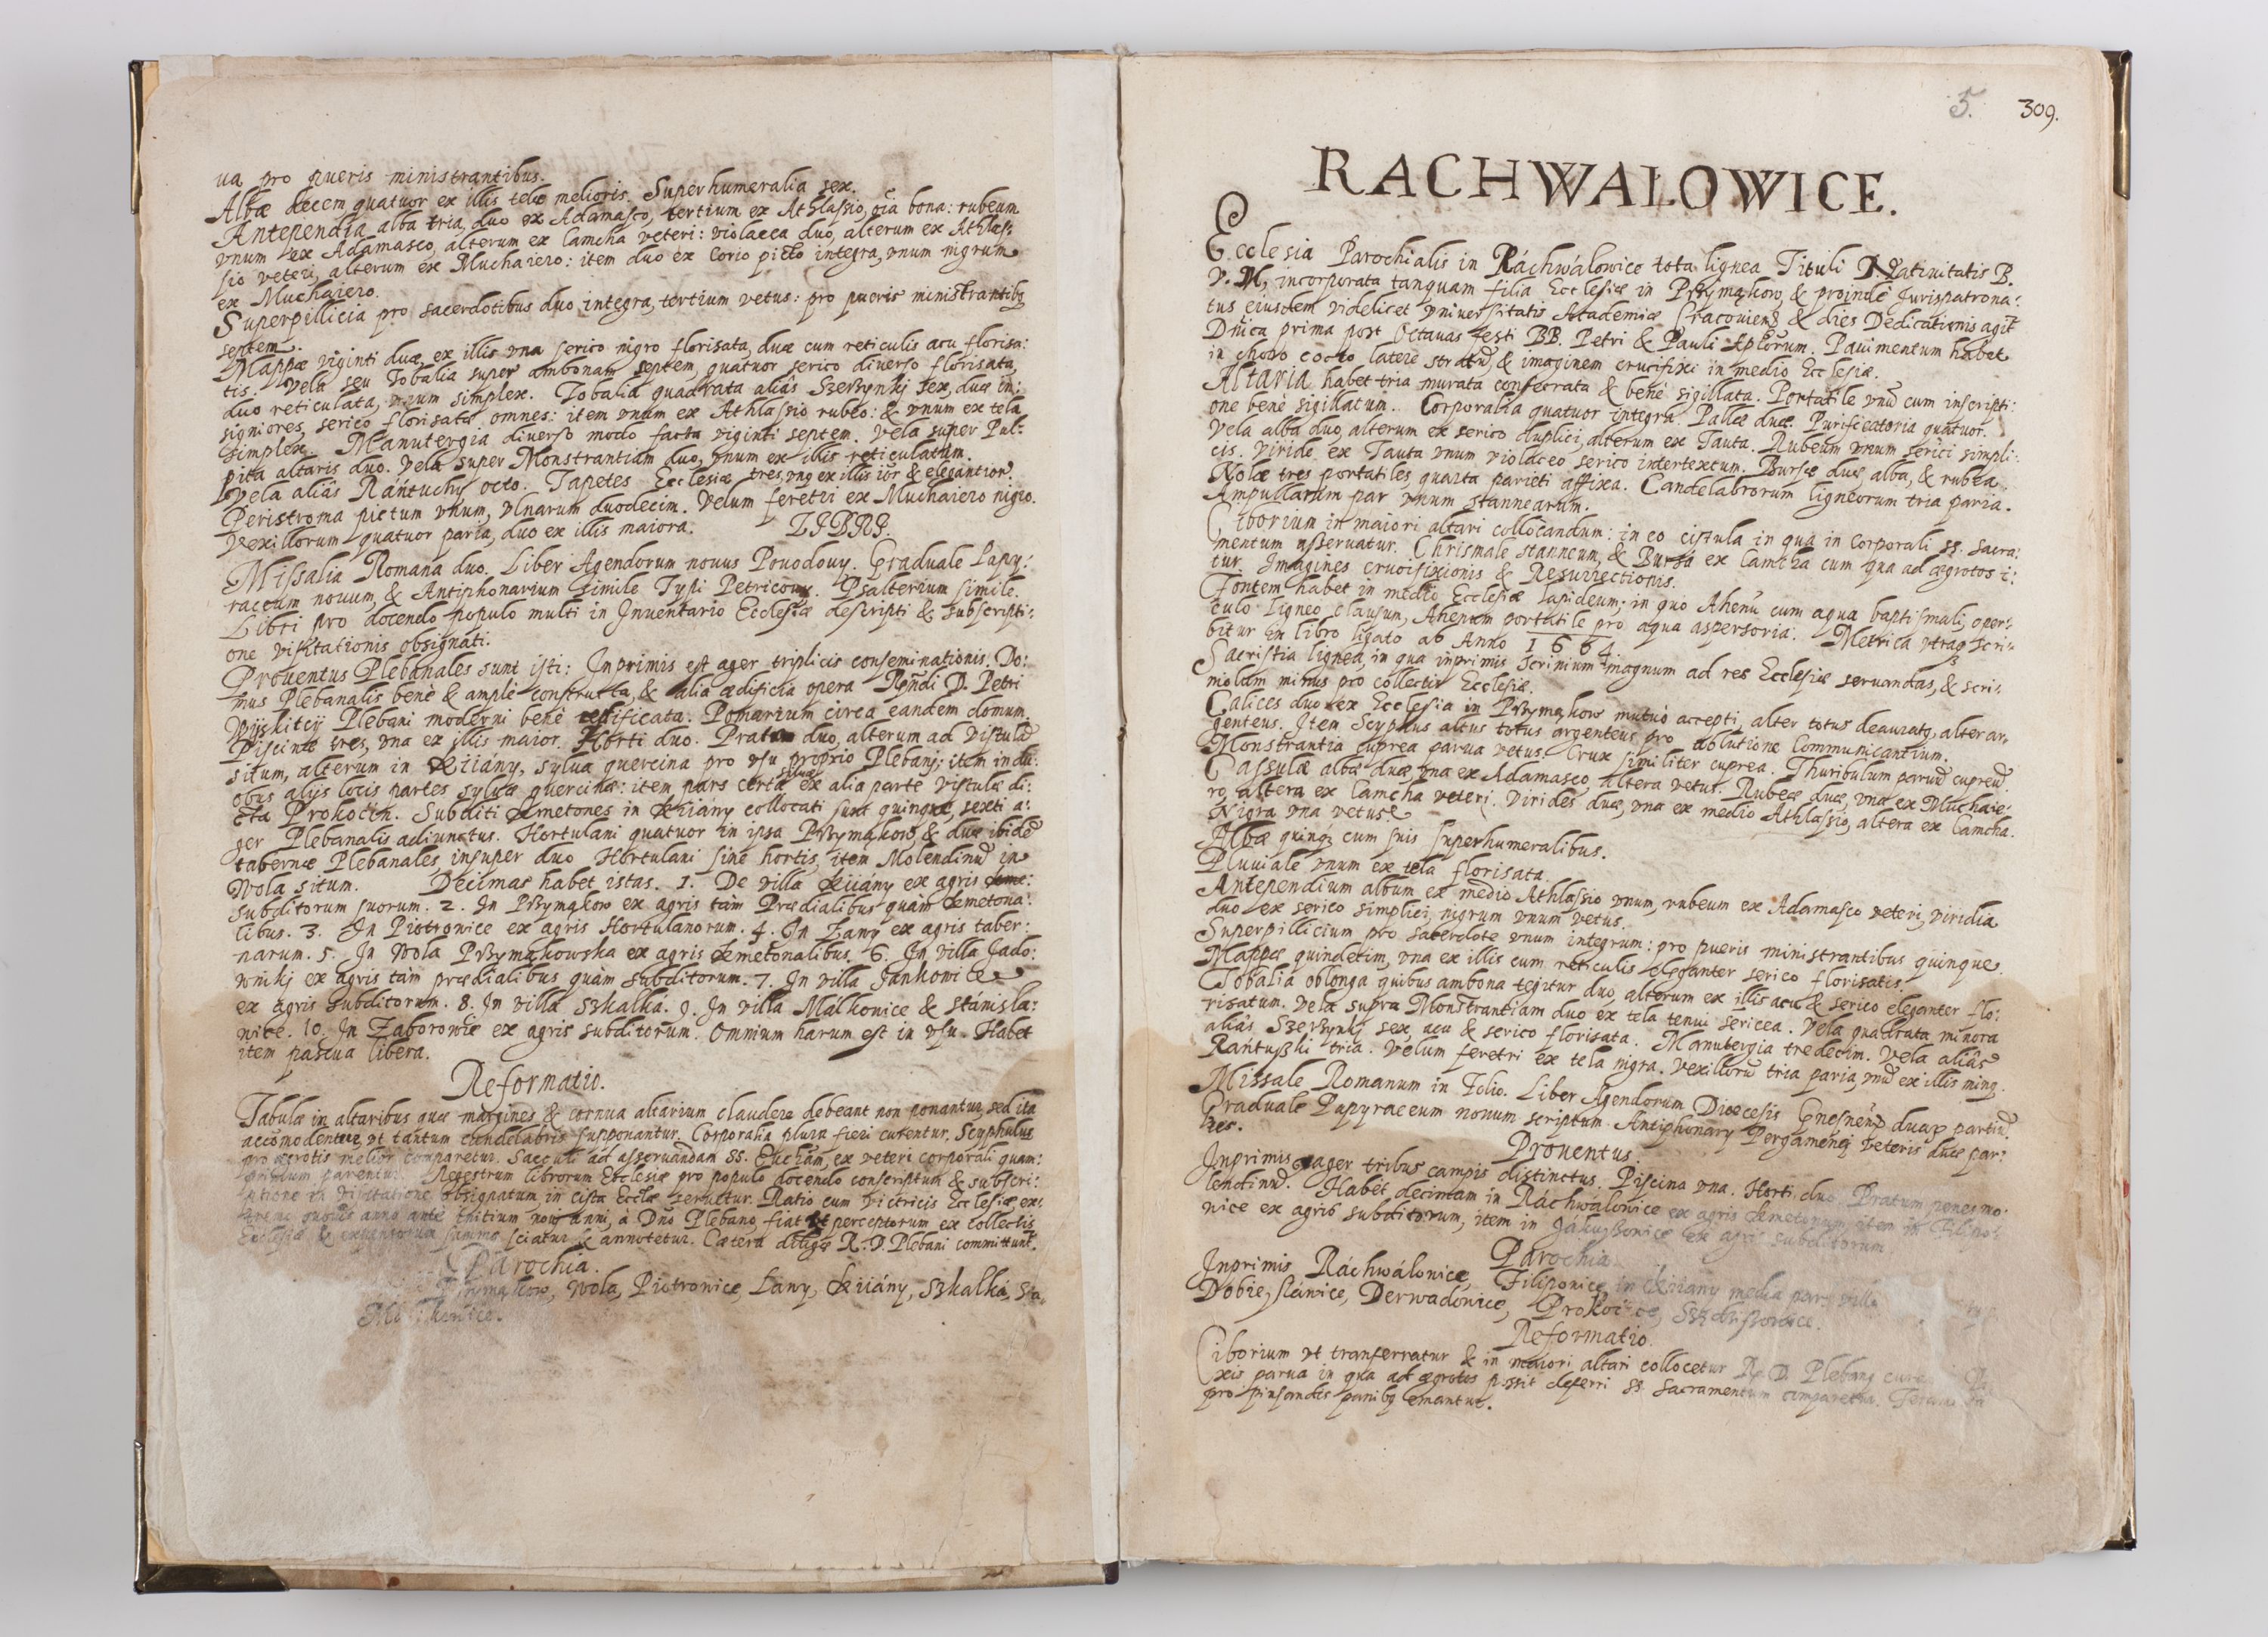 ua pro pueris ministrantibus.
Albæ decem quatuor ex illis telæ melioris. Superhumeralia sex.
Antependia alba tria, duo ex Adamasco, tertium ex Athlassio, oīa bona: rubeum
vnum ex Adamasco, alterum ex Camcha veteri: violacea duo, alterum ex Athlas:
sio veteri, alterum ex Muchaiero: item duo ex Corio picto integra, vnum nigrum
ex Muchaiero.
Superpillicia pro sacerdotibus duo integra, tertium vetus: pro pueris ministrantibꝫ
septem.
Mappæ viginti duæ, ex illis vna serico nigro florisata, duæ cum reticulis acu florisa:
tis. Vela seu Tobalia super ambonam septem, quatuor serico diverso florisata,
duo reticulata, vnum simplex. Tobalia quadrata aliàs Szerzynkj sex, duæ in:
signiores, serico florisatæ omnes: item vnum ex Athlassio rubeo: & vnum ex tela
simplex. Manutergia diverso modo facta viginti septem. Vela super Pul:
pita altaris duo. Vela super Monstrantiam duo, vnum ex illis reticulatum.
Vela aliàs Rántuchy octo. Tapetes Ecclesiæ tres, vnꝯ ex illis elegantior.
Peristroma pictum vnum, vlnarum duodecim. Velum feretri ex Muchaiero nigro.
Vexillorum quatuor paria, duo ex illis maiora. LIBRI.
Missalia Romana duo. Liber Agendorum nouus Pouodouy. Graduale Papy:
raceum nouum, & Antiphonarium simile Typi Petricouy. Psalterium simile.
Libri pro docendo populo multi in Inuentario Ecclesiæ descripti & subscripti:
one visitationis obsignati.
Prouentus Plebanales sunt isti: Inprimis est ager triplicis conseminationis. Do:
mus Plebanalis benè & amplè constructa, & alia ædificia opera Rñdi D. Petri
Plebani moderni benè redificata. Pomarium circa eandem domum.
Piscinæ tres, vna ex illis maior. Horti duo. Prata duo, alterum ad Vistulā
situm, alterum in Kiiány, sylua quercina pro vsu proprio Plebanj; item in du:
obus alijs locis partes syluæ quercinæ: item pars certa syluæ ex alia parte Vistulæ di:
cta Prokocin. Subditi Kmetones in Kiiány collocati sunt quinque, sexti a:
ger Plebanalis adiunctus. Hortulani quatuor in ipsa Przymąkow, & duæ ibidē
tabernæ Plebanales, insuper duo Hortulani sine hortis, item Molendinū in
Wola situm. Decimas habet istas. 1. De villa Kiiány ex agris
subditorum suorum. 2. In Przymąkow ex agris tàm Prædialibus quàm Kmetona:
libus. 3. In Piotrowice ex agris Hortulanorum. 4. In Łáwy ex agris taber:
narum. 5. In Wola Przymąkowska ex agris Kmetonalibus. 6. In villa Jado:
wnikj ex agris tàm prædialibus quàm subditorum. 7. In villa Jankowice
ex agris subditorum. 8. In villa Szkalká. 9. In villa Málkowice & Stanisla:
wice. 10. In Zaborowie ex agris subditorum. Omnium harum est in vsu. Habet
item pascua libera.
Reformatio.
Tabulæ in altaribus quæ margines & cornua altarium claudere debeant non ponantur, sed ita
accōmodentur, vt tantum candelabris supponantur. Corporalia plura fieri curentur. Scyphulus
pro ægrotis melior comparetur. Sacculi ad asseruandam SS. Eucham, ex veteri corporali quam:
primum parentur. Regestrum librorum Ecclesiæ pro populo docendo conscriptum & subscri:
ptione in visitatione obsignatum in cista Ecclæ seruetur. Ratio cum Vitricis Ecclesiæ, ex:
anno ante initium noui anni, à Dño Plebano, fiat vt perceptorum ex collectis
Ecclesiæ & expensorum summa sciatur & annotetur. Cætera R. D. Plebani committunt̃.
Parochia.
Przymąkow, Wola, Piotrowice, Ławy, Kiiány, Szkalká,
5. 309.
RACHWALOWICE.
Ecclesia Parochialis in Ráchwálowice tota lignea Tituli Natiuitatis B.
V. M, incorporata tanquam filia Ecclesiæ in Przymąkow, & proinde Jurispatrona:
tus eiusdem videlicet Vniuersitatis Academiæ Cracouiens̃ & dies Dedicationis agit̃
Dñica prima post Octauas festi BB. Petri & Pauli Aplorum. Pauimentum habet
in choro cocto latere stratū, & imaginem crucifixi in medio Ecclesiæ.
Altaria habet tria murata consecrata & benè sigillata. Portatile vnū cum inscripti:
one benè sigillatum. Corporalia quatuor integra. Pallæ duæ. Purificatoria quatuor.
Vela alba duo, alterum ex serico duplici, alterum ex Tauta. Rubeum vnum serici simpli:
cis. Viride ex Tauta vnum violaceo serico intertextum. Bursæ duæ alba, & rubea.
Nolæ tres portatiles, quarta parieti affixa. Candelabrorum ligneorum tria paria.
Ampullarum par vnum stannearum.
Ciborium in maiori altari collocandum: in eo cistula in qua in Corporali SS. Sacra:
mentum asseruatur. Chrismale stanneum, & Bursa ex Camcha cum qua ad ægrotos i:
tur. Imagines crucifixionis & Resurrectionis.
Fontem habet in medio Ecclesiæ lapideum; in quo Ahenū cum aqua baptismali, oper:
culo ligneo clausum, Ahenum portatile pro aqua aspersoria. Metrica vtraqꝫ scri:
bitur in libro ligato ab Anno 1664.
Sacristia lignea, in qua inprimis Scrinium magnum ad res Ecclesiæ seruandas, & scri:
niolum minus pro collectis Ecclesiæ.
Calices duo ex Ecclesia in Przymąkow mutuò accepti, alter totus deauratꝯ, alter ar:
genteus. Item Scyphus altus totus argenteus pro ablutione Communicantium.
Monstrantia cuprea parua vetus. Crux similiter cuprea. Thuribulum paruū cupreū.
Cassulæ albæ duæ, vna ex Adamasco, altera vetus. Rubeæ duæ, vna ex Muchaie:
ro, altera ex Camcha veteri. Virides duæ, vna ex medio Athlassio, altera ex Camcha.
Nigra vna vetus.
Albæ quinqꝫ cum suis superhumeralibus.
Pluuiale vnum ex tela florisata.
Antependium album ex medio Athlassio vnum, rubeum ex Adamasco veteri, viridia
duo ex serico simplici, nigrum vnum vetus.
Superpillicium pro sacerdote vnum integrum: pro pueris ministrantibus quinque.
Mappæ quindecim, vna ex illis cum reticulis eleganter serico florisatis.
Tobalia oblonga quibus ambona tegitur duo, alterum ex illis acu & serico eleganter flo:
risatum. Vela supra Monstrantiam duo ex tela tenui sericea. Vela quadrata minora
aliàs Szerzynkj sex, acu & serico florisata. Manutergia tredecim. Vela aliàs
Rántuszki tria. Velum feretri ex tela nigra. Vexillorū tria paria, vnū ex illis minꝯ.
Missale Romanum in Folio. Liber Agendorum Diœcesis Gnesneñ duarꝫ partiū.
Graduale Papyraceum nouum scriptum. Antiphonarij Pergamenej veteris duæ par:
tes.
Prouentus.
Inprimis ager tribus campis distinctus. Piscina vna. Horti duo. Pratum penes mo:
lendinū. Habet decimam in Ráchwálowice ex agris Kmetonum, item in Filipo:
wice ex agris subditorum, item in Jákuszowice ex agris subditorum.
Parochia.
Inprimis Ráchwálowice, Filipowice, in Kiiany media pars villæ
Dobiesláwice, Derwadowice,
Reformatio.
Ciborium vt transferratur & in maiori altari collocetur R. D. Plebanꝯ
xis parua in qua ad ægrotos possit deferri SS. Sacramentum comparetur.
pro pinsandis panibꝫ emantur.